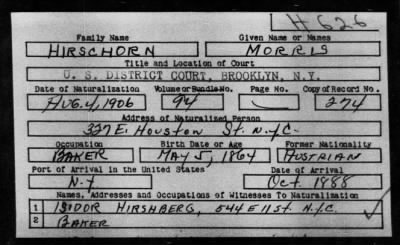 H 626
Family Name Given Name or Names
HIRSCHORN MORRIS
Title and Location of Court
U. S. DISTRICT COURT, BROOKLYN, N.Y.
Date of Naturalization Volume or Bundle No. Page No. Copy of Record No.
AUG. 4, 1906 94 — 274
Address of Naturalized Person
327 E. HOUSTON St. N.Y.C.
Occupation Birth Date or Age Former Nationality
BAKER MAY 5, 1864 AUSTRIAN
Port of Arrival in the United States Date of Arrival
N.Y Oct. 1888
Names, Addresses and Occupations of Witnesses To Naturalization
1 ISIDOR HIRSHBERG, 544 E 11 St. N.Y.C.
2 BAKER